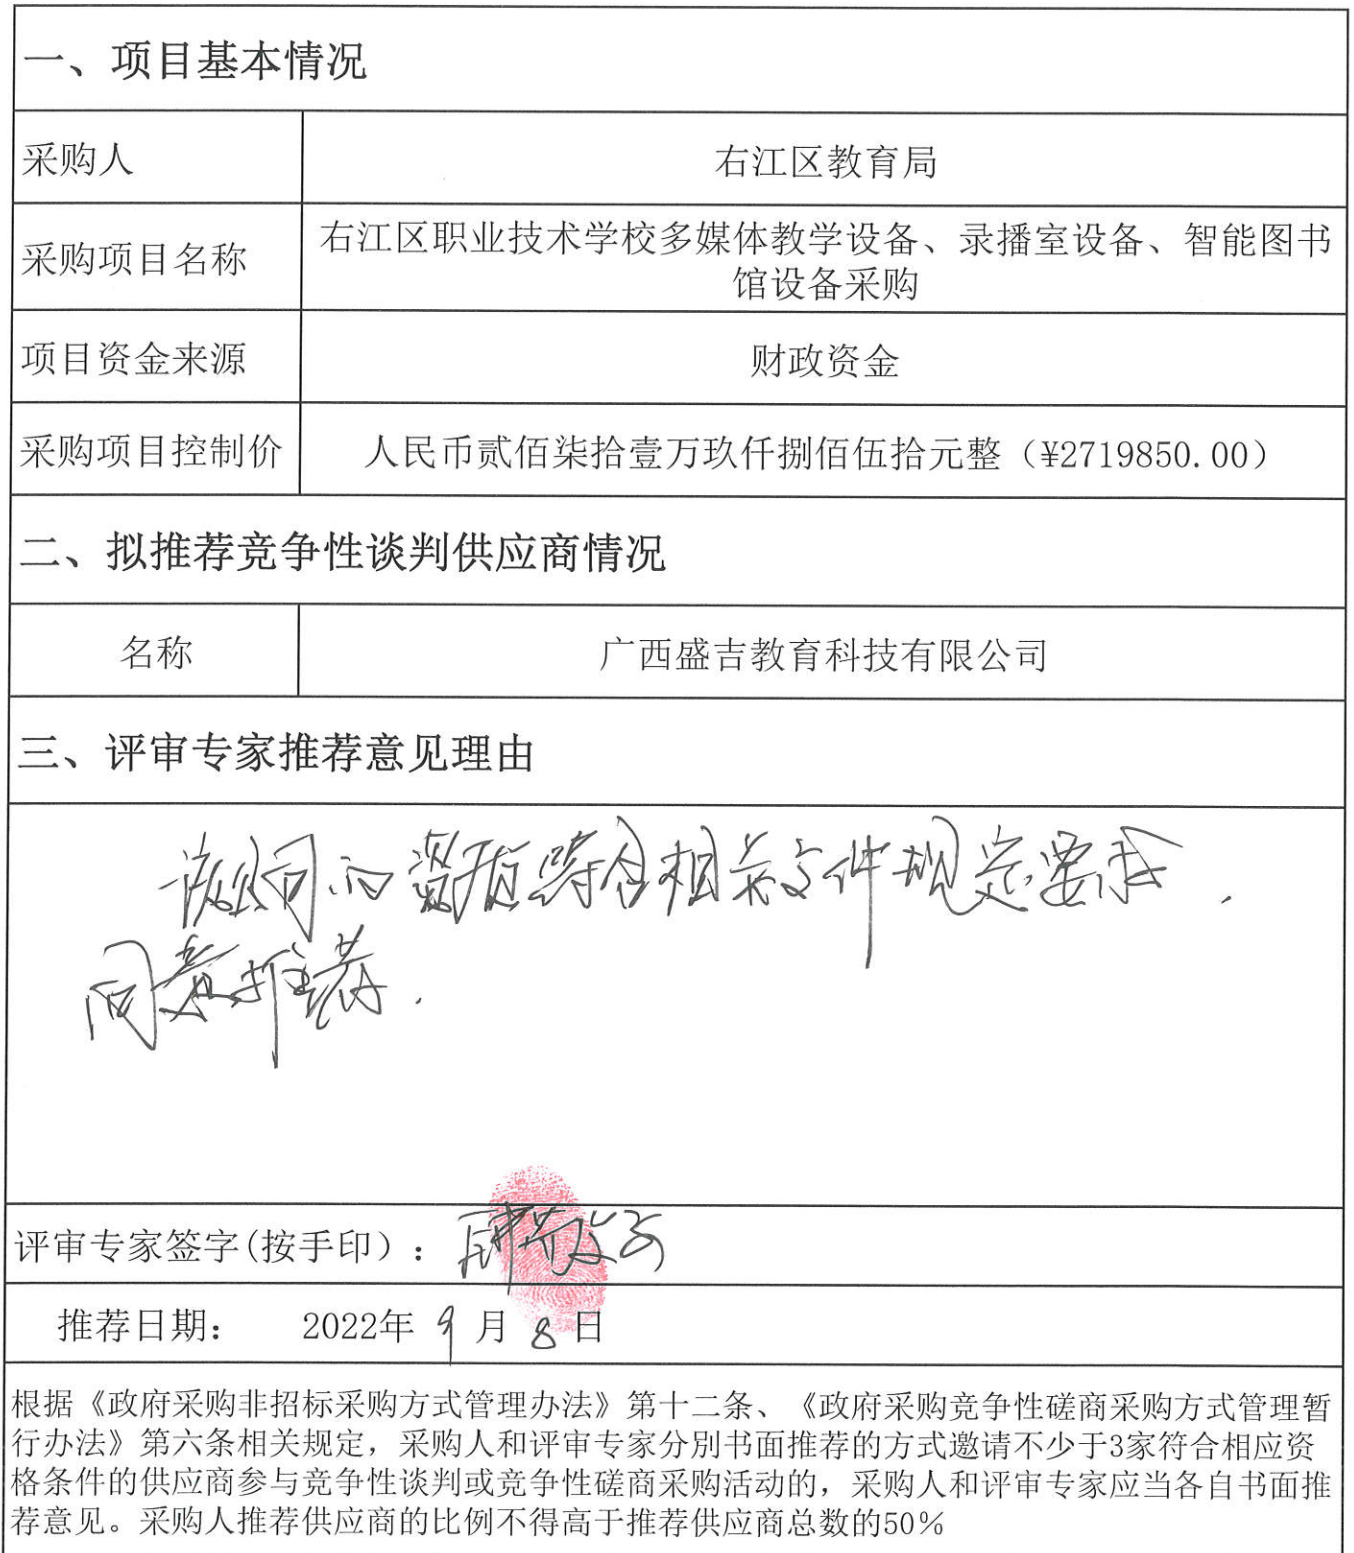 一、项目基本情况
采购人
右江区教育局
采购项目名称
右江区职业技术学校多媒体教学设备、录播室设备、智能图书
馆设备采购
项目资金来源
财政资金
采购项目控制价
人民币贰佰柒拾壹万玖仟捌佰伍拾元整（¥2719850.00）
二、拟推荐竞争性谈判供应商情况
名称
广西盛吉教育科技有限公司
三、评审专家推荐意见理由
该公司的资质符合相关文件规定要求，
同意推荐.
评审专家签字(按手印）:
推荐日期: 2022年 9 月 8 日
根据《政府采购非招标采购方式管理办法》第十二条、《政府采购竞争性磋商采购方式管理暂
行办法》第六条相关规定，采购人和评审专家分别书面推荐的方式邀请不少于3家符合相应资
格条件的供应商参与竞争性谈判或竞争性磋商采购活动的，采购人和评审专家应当各自书面推
荐意见。采购人推荐供应商的比例不得高于推荐供应商总数的50%